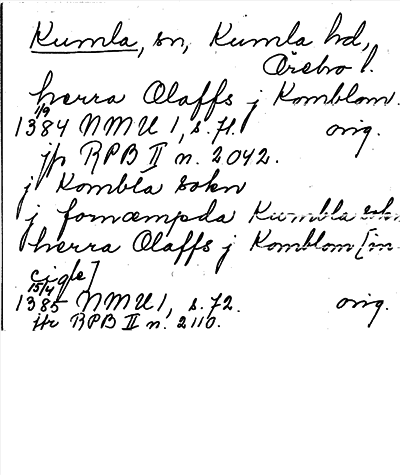 Kumla, sn, Kumla hd,
Örebro l.
herra Olaffs j Komblom.
1384 1/9 NMU 1, s. 71. orig.
jfr RPB II n. 2042.
j Kombla sokn
j fornæmpda Kumbla sokn
herra Olaffs j Komblom [in-
cigle]
1385 15/4 NMU 1, s. 72. orig.
jfr RPB II n. 2110.